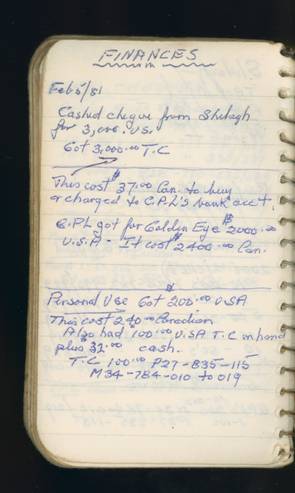 FINANCES
Feb 5/81
Cashed cheque from Shelagh
for 3,000. U.S.
Got 3,000.00 T.C
This cost $37.00 Can. to buy
& charged to C.P.L's bank acct.
C.P.L got for Golden Eye $2000.00
U.S.A - It cost $2400.00 Can.
Personal Use Got 200.00 USA
This cost 240.00 Canadian
Also had 100.00 U.SA T.C in hand
plus $32.00 cash.
T.C 100.00 P27-835-115
M34-784-010 to 019